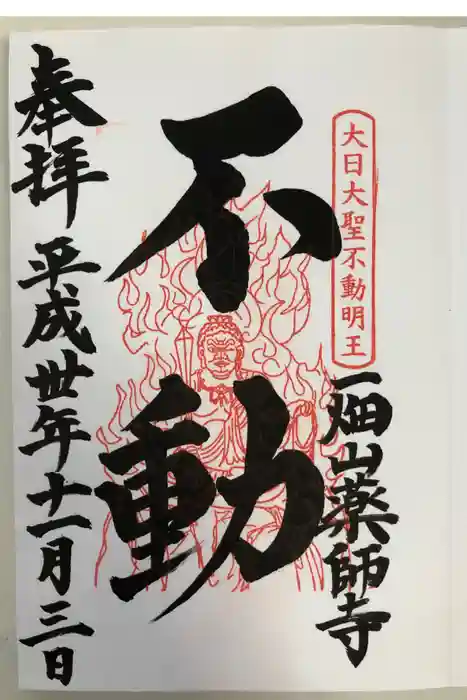 大日大聖不動明王
一畑山薬師寺
不動
奉拝 平成丗年十一月三日